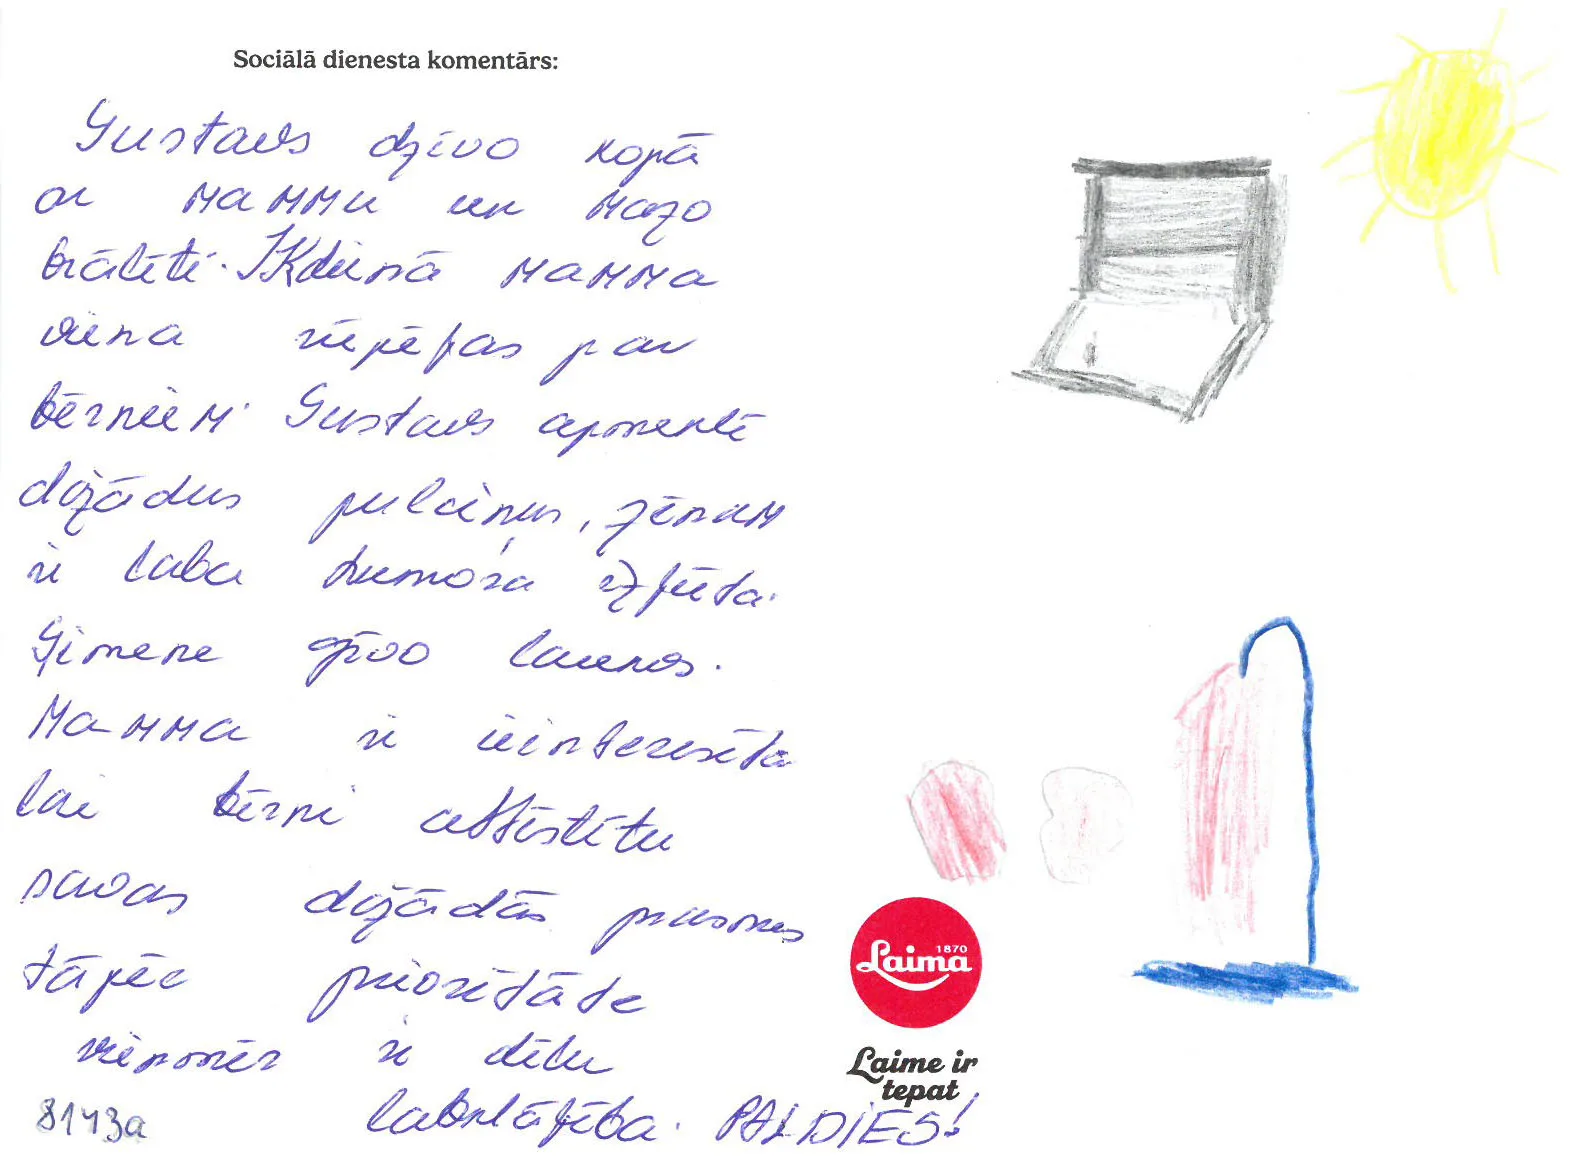 Sociālā dienesta komentārs:
Gustavs dzīvo kopā
ar mammu un mazo
brālīti. Ikdienā mamma
viena rūpējas par
bērniem. Gustavs apmeklē
dažādus pulciņus, zēnam
ir laba humora izjūta.
Ģimene dzīvo laukos.
Mamma ir ieinteresēta
lai bērni attīstītu
savas dažādās prasmes
tāpēc prioritāte
vienmēr ir dēlu
labklājība. PALDIES!
8143a
Laima 1870
Laime ir
tepat